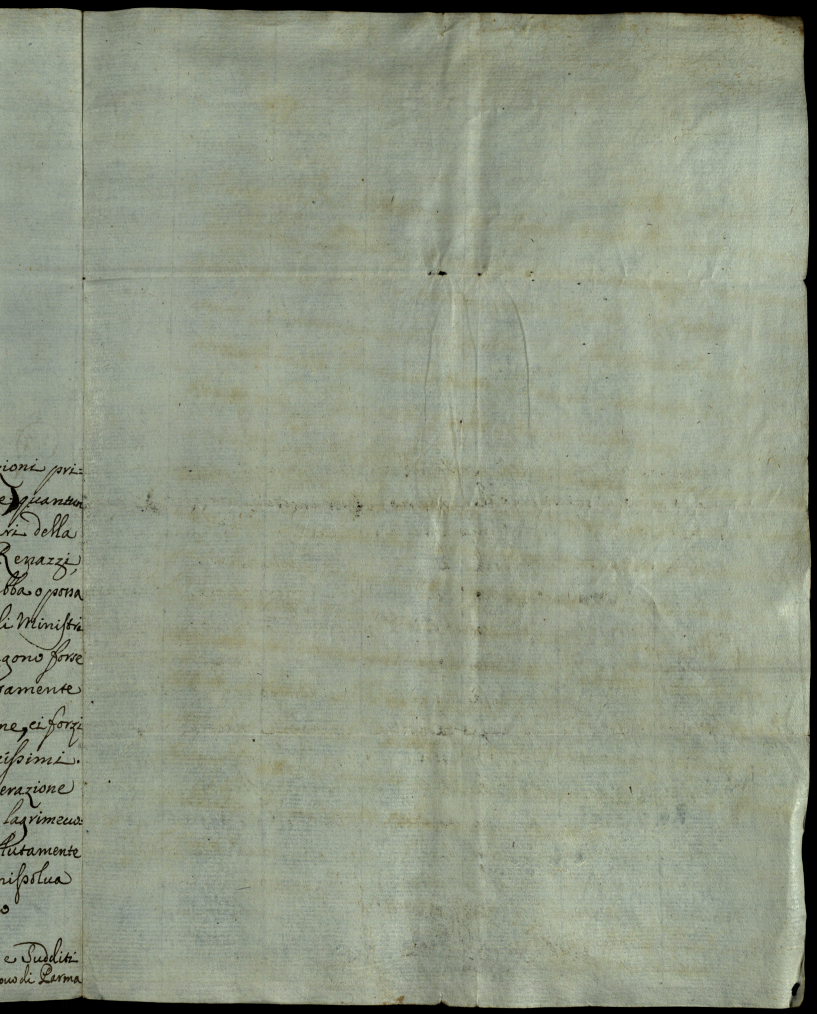 zioni pri=
e quantun
ri della
Renazzi,
bba o possa
li Ministri
gono forse
samente
ne, ci forzi
cissimi.
erazione
lagrimevo=
lutamente
risolva
o
e Sudditi
ovo di Parma